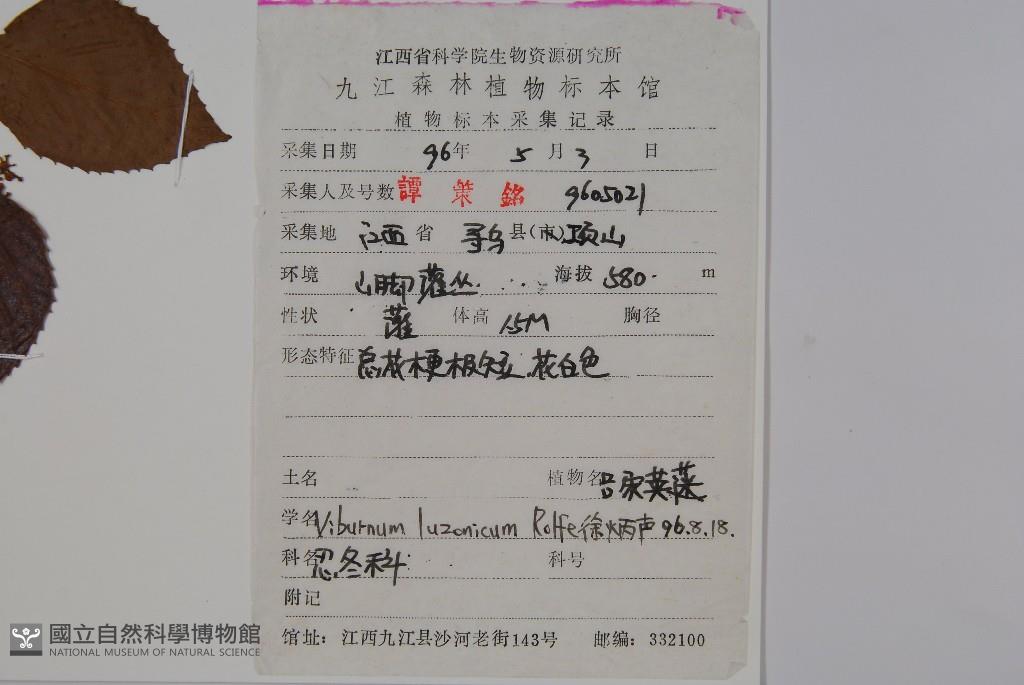 江西省科学院生物资源研究所
九江森林植物标本馆
植物标本采集记录
采集日期 96年 5 月 3 日
采集人及号数 譚策銘 9605021
采集地 江西 省 寻乌 县(市) 项山
环境 山脚灌丛 海拔 580 m
性状 灌 体高 1.5M 胸径
形态特征 总花梗极短，花白色
土名 植物名 吕宋荚蒾
学名 Viburnum luzonicum Rolfe 徐炳声 96.8.18.
科名 忍冬科 科号
附记
馆址：江西九江县沙河老街143号 邮编：332100
國立自然科學博物館
NATIONAL MUSEUM OF NATURAL SCIENCE